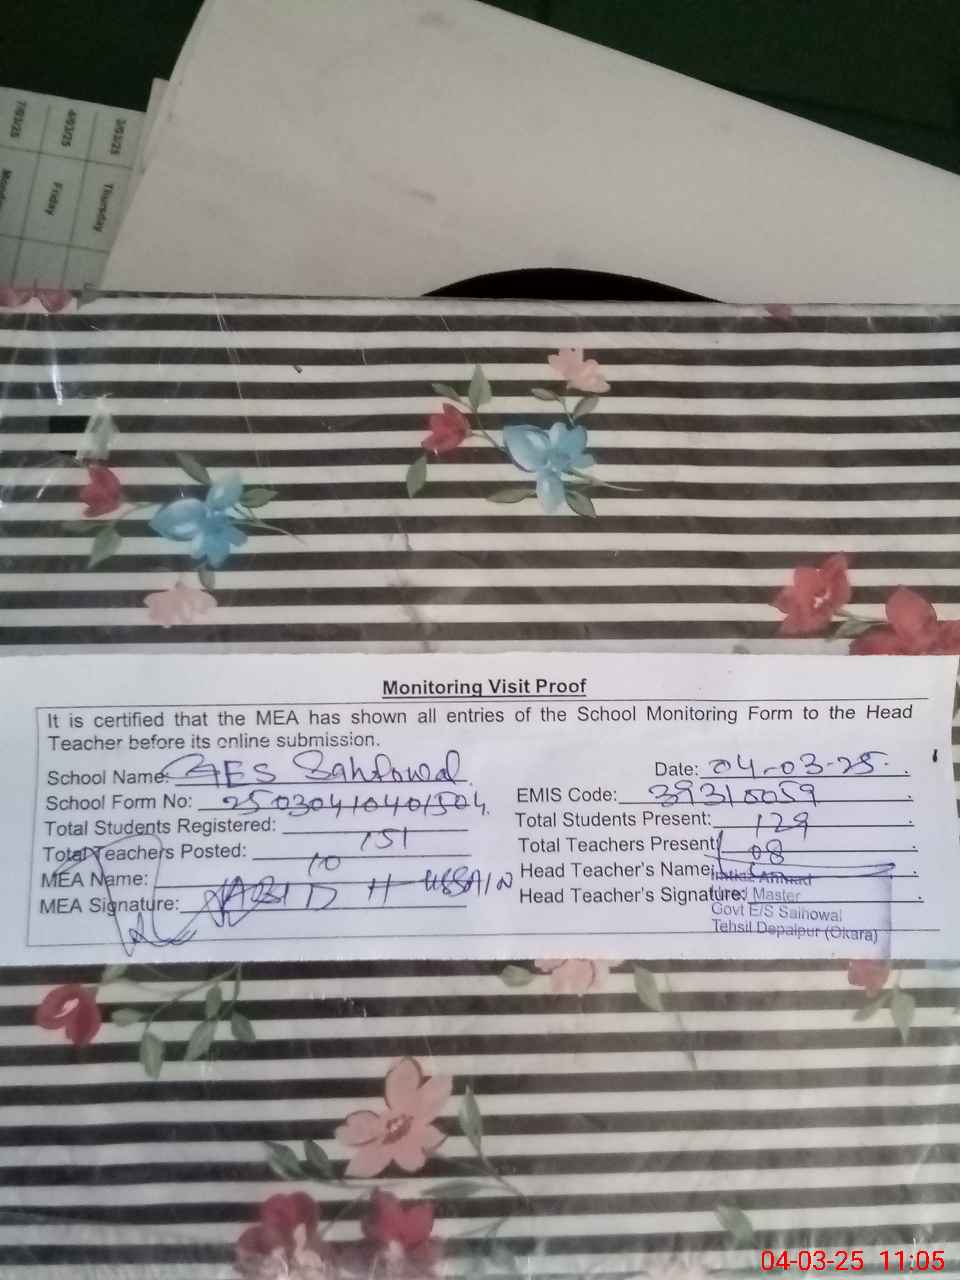 3/03/25
Thursday
4/03/25
Friday
7/03/25
Monitoring Visit Proof
It is certified that the MEA has shown all entries of the School Monitoring Form to the Head
Teacher before its online submission.
School Name: GES Sahowal
Date: 04-03-25.
School Form No: 25030410401504
EMIS Code: 39310059
Total Students Registered: 151
Total Students Present: 129
Total Teachers Posted: 10
Total Teachers Present: 08
MEA Name: ABID HUSSAIN
Head Teacher's Name: Imtiaz Ahmad
MEA Signature:
Head Teacher's Signature:
Head Master
Govt E/S Saihowal
Tehsil Depalpur (Okara)
04-03-25 11:05